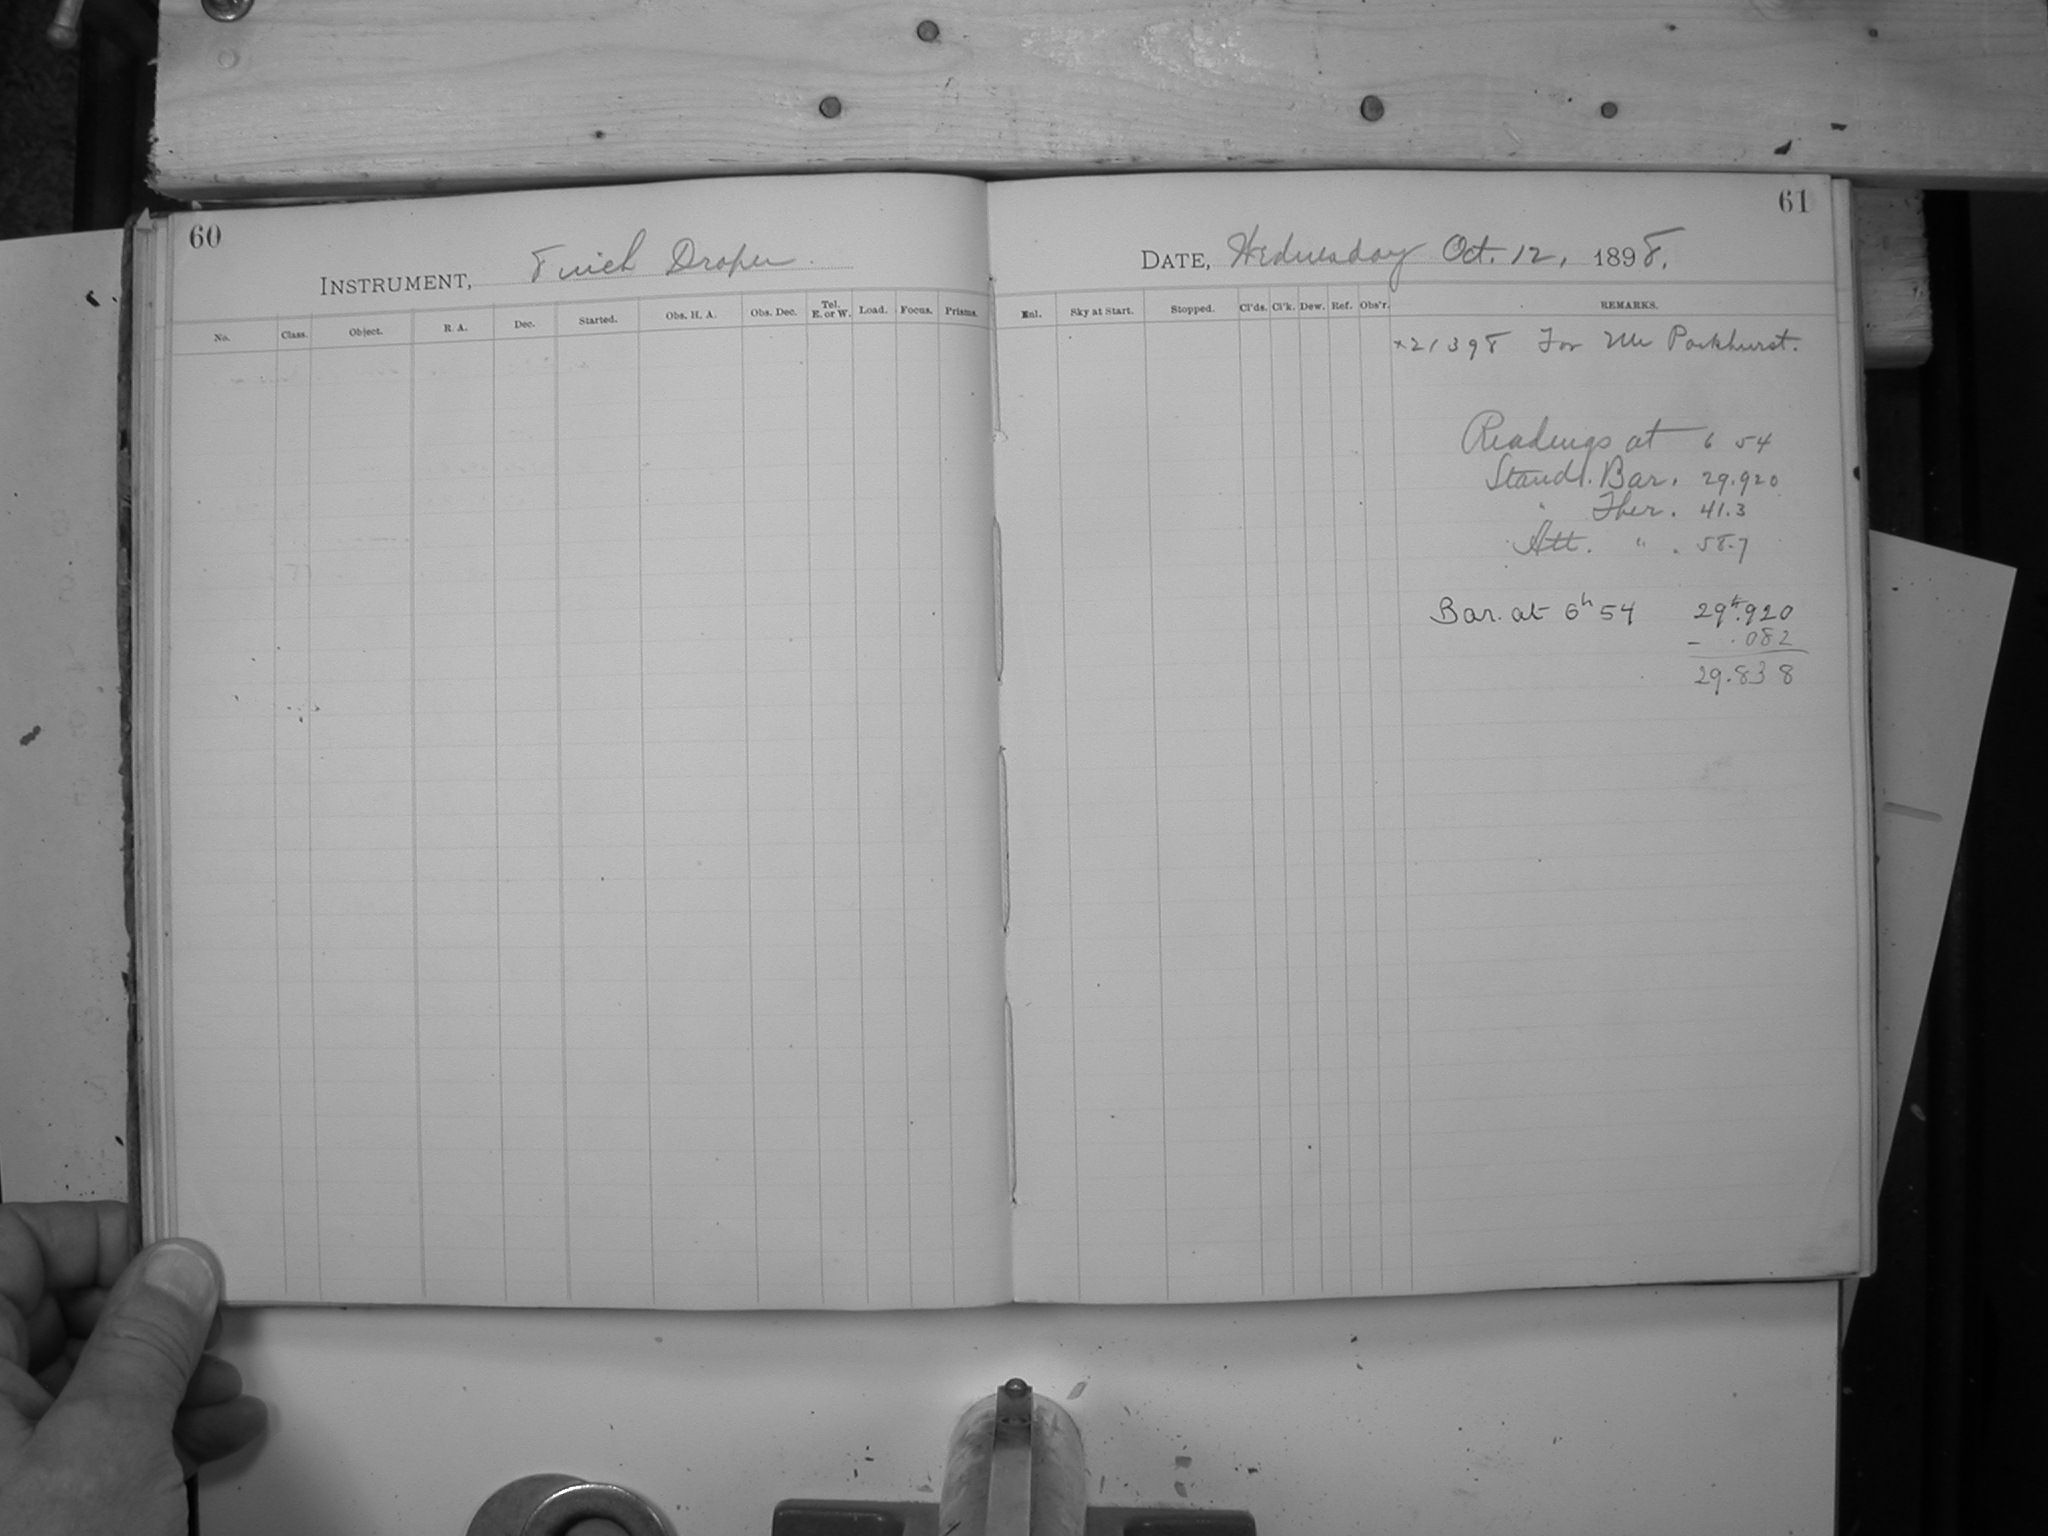 60
INSTRUMENT, 8 inch Draper.
No. Class. Object. R. A. Dec. Started. Obs. H. A. Obs. Dec. Tel. E. or W. Load. Focus. Prisms.
61
DATE, Wednesday Oct. 12, 1898.
Enl. Sky at Start. Stopped. Cl'ds. Cl'k. Dew. Ref. Obs'r. REMARKS.
×21398 For Mr Parkhurst.
Readings at 6 54
Stand. Bar. 29.920
" Ther. 41.3
Att. " . 58.7
Bar. at 6h 54 29.920
- .082
29.838